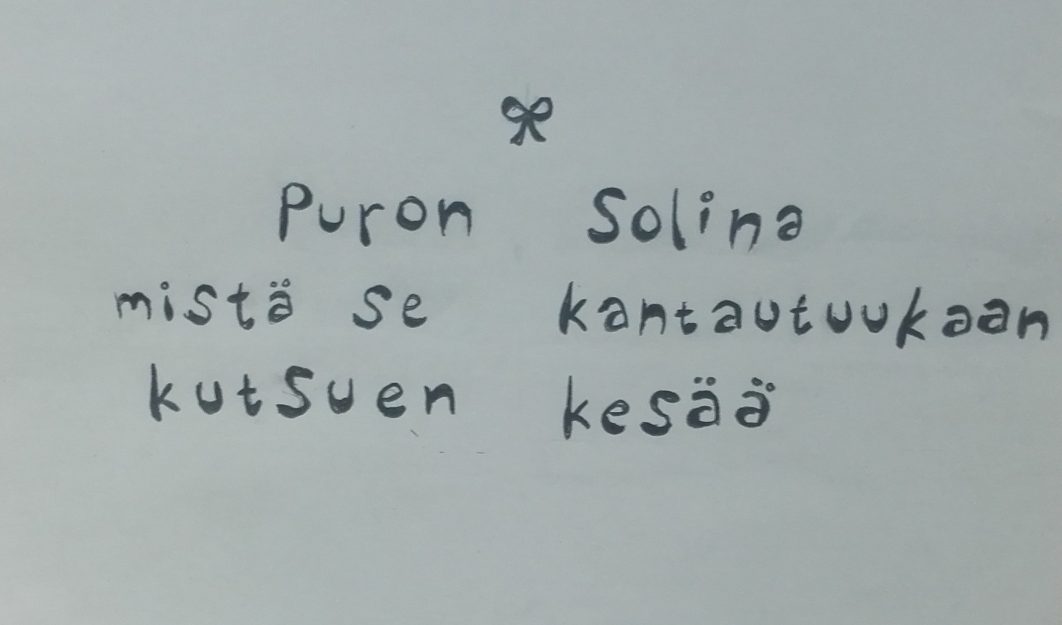 Puron Solina
mistä se kantautuukaan
kutsuen kesää